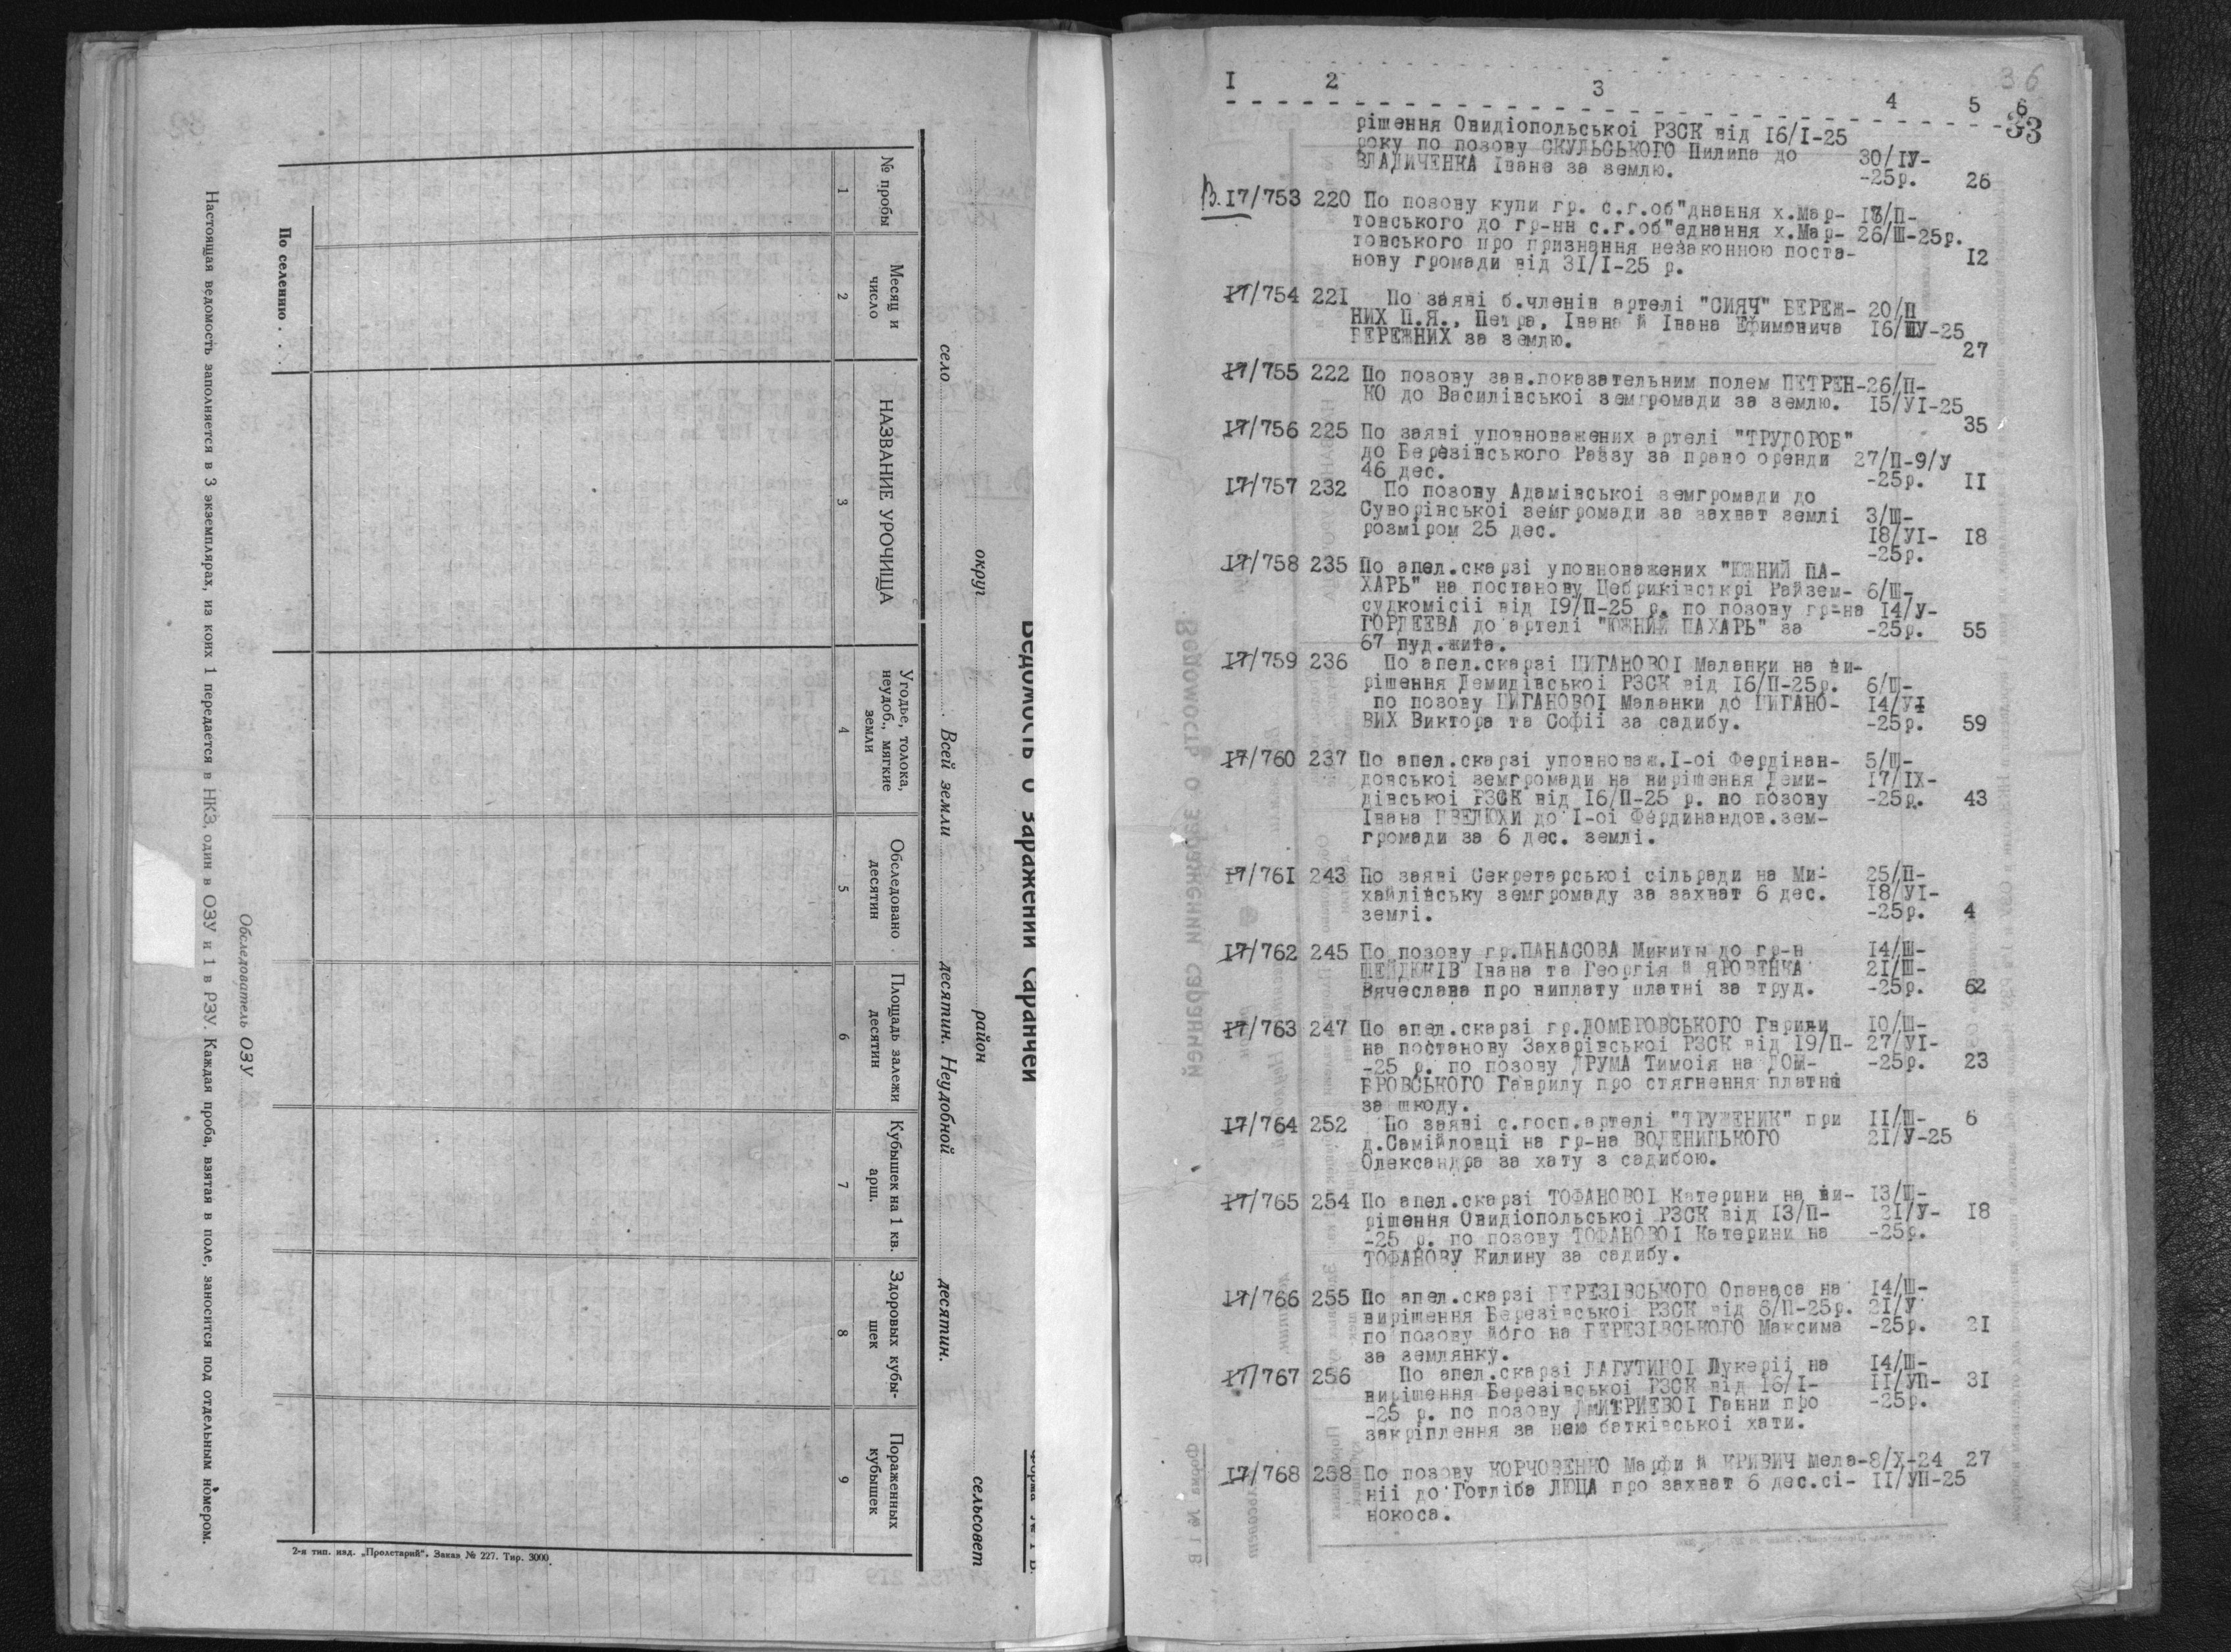 Ведомость о заражении саранчей
округ район сельсовет
село Всей земли десятин. Неудобной десятин.
№ пробы
Месяц и число
НАЗВАНИЕ УРОЧИЩА
Угодье, толока, неудоб., мягкие земли
Обследовано десятин
Площадь залежи десятин
Кубышек на 1 кв. арш.
Здоровых кубышек
Пораженных кубышек
1 2 3 4 5 6 7 8 9
По селению . . .
Обследователь ОЗУ
Настоящая ведомость заполняется в 3 экземплярах, из коих 1 передается в НКЗ, один в ОЗУ и 1 в РЗУ. Каждая проба, взятая в поле, заносится под отдельным номером.
2-я тип. изд. „Пролетарий“. Заказ № 227. Тир. 3000
36
I 2 3 4 5 6
33
рішення Овидіопольськоі РЗСК від I6/I-25
року по позову СКУЛЬСЬКОГО Пилипа до 30/IУ-
ВЛАДИЧЕНКА Івана за землю. -25р. 26
В. I7/753 220 По позову купи гр. с.г.об"днання х.Мар- I8/П-
товського до гр-нн с.г.об"еднання х.Мар- 26/Ш-25р.
товського про признання незаконною поста-
нову громади від 3I/I-25 р. I2
I7/754 22I По заяві б.членів артелі "СИЯЧ" БЕРЕЖ- 20/П
НИХ П.Я., Петра, Івана й Івана Ефимовича I6/ШУ-25
БЕРЕЖНИХ за землю. 27
I7/755 222 По позову зав.показательним полем ПЕТРЕН-26/П-
КО до Василівськоі земгромади за землю. I5/УI-25
35
I7/756 225 По заяві уповноважених артелі "ТРУДОРОБ"
до Березівського Райзу за право оренди 27/П-9/У
46 дес. -25р. II
I7/757 232 По позову Адамівськоі земгромади до
Суворівськоі земгромади за захват землі 3/Ш-
розміром 25 дес. I8/УI- I8
-25р.
I7/758 235 По апел.скарзі уповноважених "ЮЖНИЙ ПА-
ХАРЬ" на постанову Цебриківсткрі Райзем- 6/Ш-
судкомісіі від I9/П-25 р. по позову гр-на I4/У-
ГОРДЕЕВА до артелі "ЮЖНИЙ ПАХАРЬ" за -25р. 55
67 пуд.жита.
I7/759 236 По апел.скарзі ЦИГАНОВОІ Маланки на ви-
рішення Демидівськоі РЗСК від I6/П-25р. 6/Ш-
по позову ЦИГАНОВОІ Маланки до ЦИГАНО- I4/УI
ВИХ Виктора та Софіі за садибу. -25р. 59
I7/760 237 По апел.скарзі уповноваж.I-оі Фердінан- 5/Ш-
довськоі земгромади на вирішення Деми- I7/IX-
дівськоі РЗСК від I6/П-25 р. по позову -25р. 43
Івана ГВЕЛЮХИ до I-оі Фердинандов.зем-
громади за 6 дес. землі.
I7/76I 243 По заяві Секретарськоі сільради на Ми- 25/П-
хайлівську земгромаду за захват 6 дес. I8/УI-
землі. -25р. 4
I7/762 245 По позову гр.ПАНАСОВА Микиты до гр-н I4/Ш-
ШЕЙДЮКІВ Івана та Георгія й ЯРОВЕНКА 2I/Ш-
Вячеслава про виплату платні за труд. -25р. 62
I7/763 247 По апел.скарзі гр.ДОМБРОВСЬКОГО Гврили I0/Ш-
на постанову Захарівськоі РЗСК від I9/П- 27/УI-
-25 р. по позову ДРУМА Тимоія на ДОМ- -25р. 23
БРОВСЬКОГО Гаврилу про стягнення платні
за шкоду.
I7/764 252 По заяві с.госп.артелі "ТРУЖЕНИК" при II/Ш- 6
д.Самійловці на гр-на ВОДЕНИЦЬКОГО 2I/У-25
Олександра за хату з садибою.
I7/765 254 По апел.скарзі ТОФАНОВОІ Катерини на ви- I3/Ш-
рішення Овидіопольськоі РЗСК від I3/П- 2I/У- I8
-25 р. по позову ТОФАНОВОІ Катерини на -25р.
ТОФАНОВУ Килину за садибу.
I7/766 255 По апел.скарзі БЕРЕЗІВСЬКОГО Опанаса на I4/Ш-
вирішення Березівськоі РЗСК від 6/П-25р. 2I/У
по позову його на БЕРЕЗІВСЬКОГО Максима -25р. 2I
за землянку.
I7/767 256 По апел.скарзі ЛАГУТИНОІ Лукеріі на I4/Ш-
вирішення Березівськоі РЗСК від I6/I- II/УП- 3I
-25 р. по позову ДМИТРИЕВОІ Ганни про -25р.
закріплення за нею батківськоі хати.
I7/768 258 По позову КОРЧОВЕНКО Марфи й КРИВИЧ Мела-8/X-24 27
ніі до Готліба ЛЮЦА про захват 6 дес.сі- II/УП-25
нокоса.